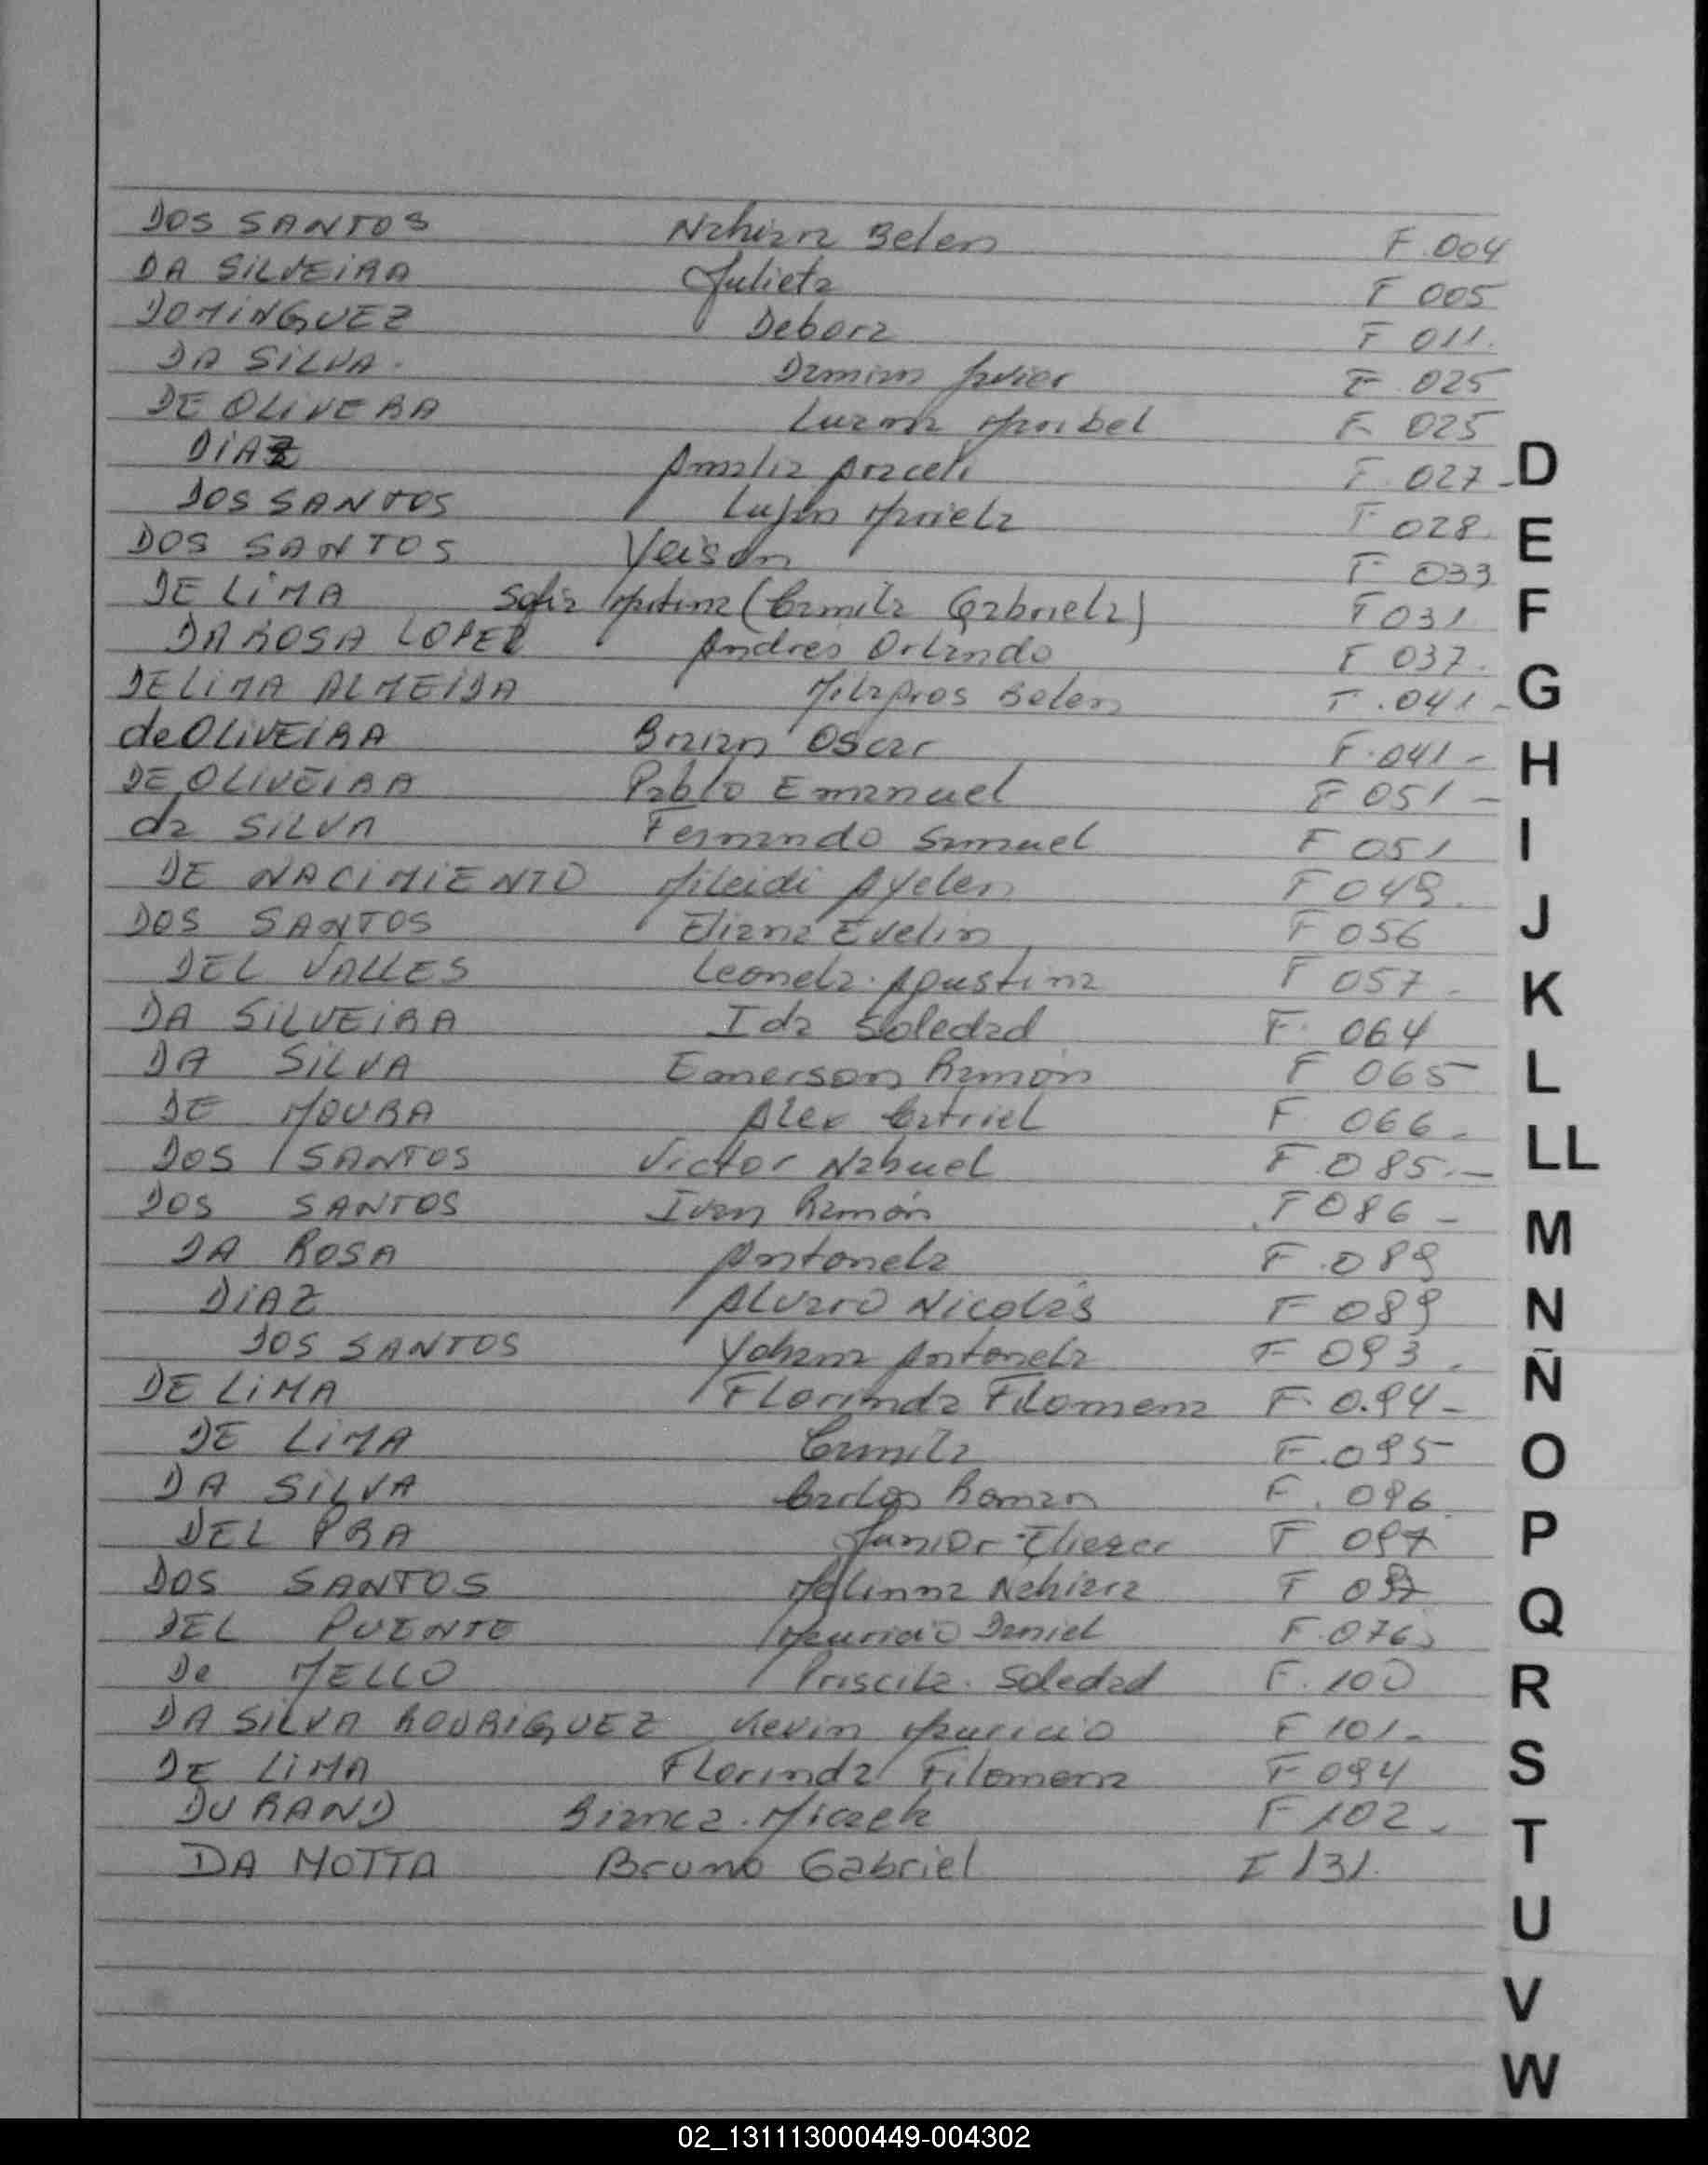 DOS SANTOS Nahiara Belen F.004
DA SILVEIRA Julieta F 005
DOMINGUEZ Debora F 011.
DA SILVA. Damian Javier F 025
DE OLIVERA Luzma Maribel F 025
DIAZ Amalia Araceli F.027-
DOS SANTOS Lujan Mariela F 028.
DOS SANTOS Yeison F 033
DE LIMA Sofia Martina (Camila Gabriela) F 031
DA ROSA LOPEZ Andres Orlando F 037.
DE LIMA ALMEIDA Milagros Belen F.041-
de OLIVEIRA Braian Oscar F.041-
DE OLIVEIRA Pablo Emanuel F 051-
da SILVA Fernando Samuel F 051
DE NACIMIENTO Mileidi Ayelen F 049.
DOS SANTOS Eliana Evelin F 056
DEL VALLES Leonela. Agustina F 057-
DA SILVEIRA Ida Soledad F. 064
DA SILVA Emerson Ramón F 065
DE MOURA Alex Catriel F 066.
DOS SANTOS Victor Nahuel F.085.-
DOS SANTOS Ivan Ramón F 086-
DA ROSA Antonela F.089
DIAZ Alvaro Nicolás F 089
DOS SANTOS Yohana Antonela F 093.
DE LIMA Florinda Filomena F. 0.94-
DE LIMA Camila F.095
DA SILVA Carlos Roman F. 096
DEL PRA Junior Eliezer F 097
DOS SANTOS Nahiara F
DEL PUENTE Mauricio Daniel F.076
De MELLO Priscila. Soledad F.100
DA SILVA RODRIGUEZ Kevin Mauricio F 101-
DE LIMA Florinda Filomena F 094
DURAND Bianca. Micaela F 102.
DA MOTTA Bruno Gabriel F 131.
D
E
F
G
H
I
J
K
L
LL
M
N
Ñ
O
P
Q
R
S
T
U
V
W
02_131113000449-004302